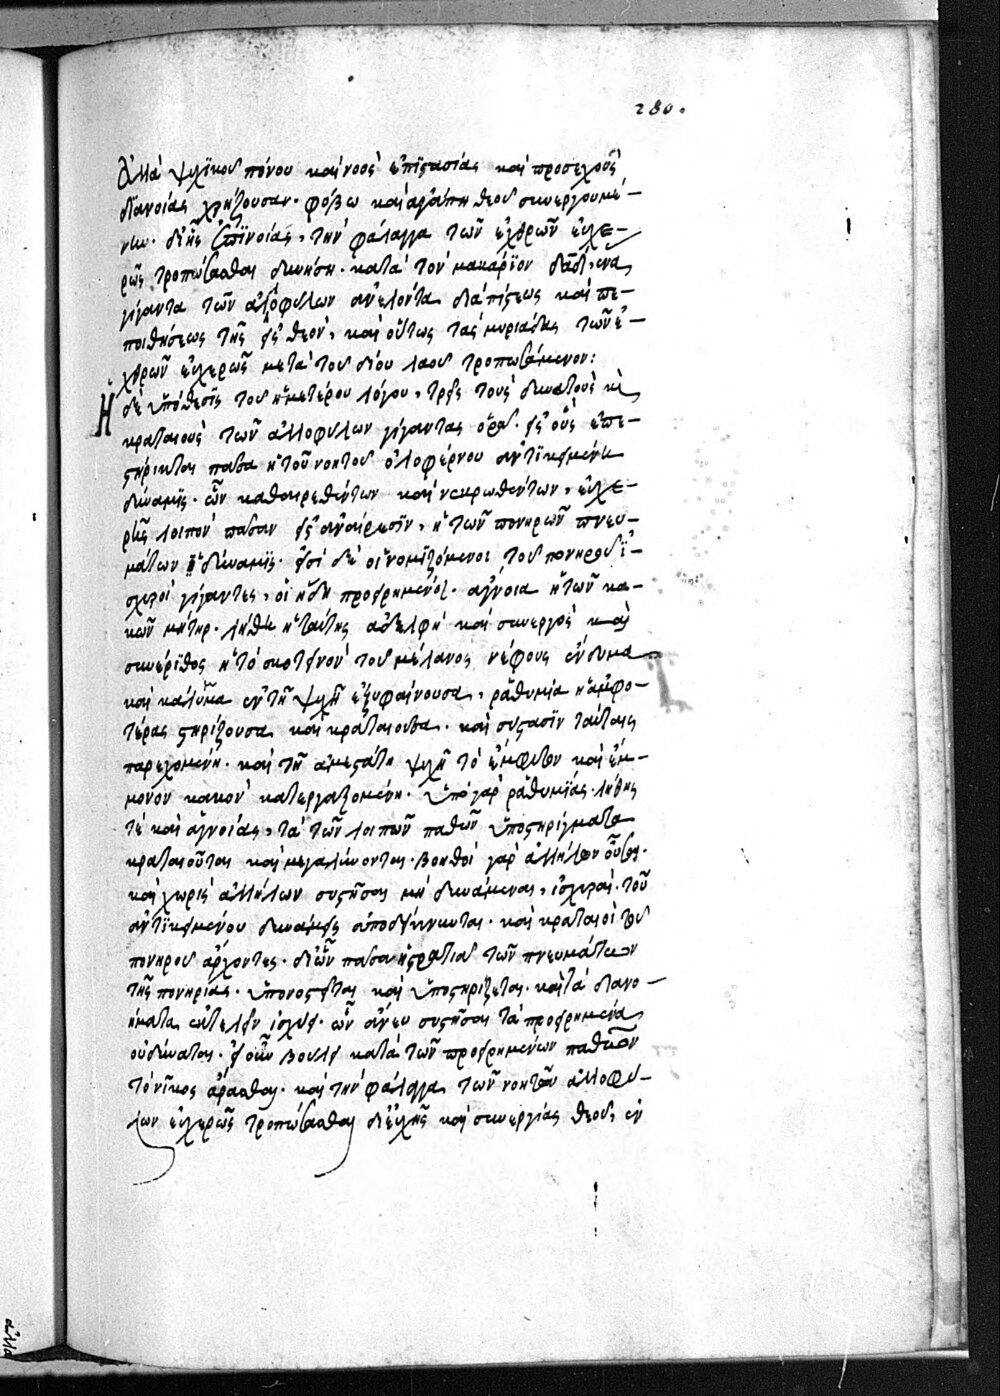 280.
ἀλλὰ ψυχικοῦ πόνου καὶ νοὸς ἐπιστασίας καὶ προσεχοῦς
διανοίας χρήζουσαν· φόβω καὶ ἀγάπη θεοῦ συνεργουμέ-
νων· δι' ἧς ἐπινοίας, τὴν φάλαγγα τῶν ἐχθρῶν εὐχε-
ρῶς τροπώσασθαι δυνήση· κατὰ τὸν μακάριον δαδ, ἕνα
γίγαντα τῶν ἀλλοφύλων ἀνελόντα διὰ πίστεως καὶ πε-
ποιθήσεως τῆς εἰς θεὸν, καὶ οὕτως τὰς μυριάδας τῶν ἐ-
χθρῶν εὐχερῶς μετὰ τοῦ ἰδίου λαοῦ τροπωσάμενον:
Ἡ δὲ ὑπόθεσις τοῦ ἡμετέρου λόγου, τρεῖς τοὺς δυνατοὺς κὶ
κραταιοὺς τῶν ἀλλοφύλων γίγαντας ὁρᾶ· εἰς οὓς ἐπε-
στήρικται πᾶσα ἡ τοῦ νοητοῦ ὀλοφέρνου ἀντικειμένη
δύναμις· ὧν καθαιρεθέντων καὶ νεκρωθέντων, εὐχε-
ρῶς λοιπὸν πᾶσαν εἰς ἀναίρεσιν, ἡ τῶν πονηρῶν πνευ-
μάτων ἀδύναμις· εἰσὶ δὲ οἱ νομιζόμενοι τοῦ πονηροῦ ἰ-
σχυροὶ γίγαντες, οἱ ἤδη προειρημένοι· ἄγνοια ἡ τῶν κα-
κῶν μήτηρ· λήθη ἡ ταύτης ἀδελφὴ καὶ συνεργὸς καὶ
συνέριθος ἡ τὸ σκοτεινὸν τοῦ μέλανος νέφους ἔνδυμα
καὶ κάλυμμα ἐν τῆ ψυχῆ ἐξυφαίνουσα, ραθυμία ἡ ἀμφο-
τέρας στηρίζουσα καὶ κραταιοῦσα· καὶ σύστασιν ταύταις
παρεχομένη· καὶ τῆ ἀμελεστάτη ψυχῆ τὸ ἔμφυτον καὶ ἔμ-
μονον κακὸν κατεργαζομένη· ὑπὸ γὰρ ραθυμίας λήθης
τὲ καὶ ἀγνοίας, τὰ τῶν λοιπῶν παθῶν ὑποστηρίγματα
κραταιοῦται καὶ μεγαλύνονται· βοηθοὶ γὰρ ἀλλήλων οὖσαι·
καὶ χωρὶς ἀλλήλων συστῆσαι μὴ δυνάμεναι, ἰσχυραὶ τοῦ
ἀντικειμένου δυνάμεις ἀποδείκνυνται· καὶ κραταιοὶ τοῦ
πονηροῦ ἄρχοντες· δι' ὧν πᾶσα ἡ στρατιὰ τῶν πνευμάτων
τῆς πονηρίας· ὑπονοεῖται καὶ ὑποστηρίζεται· καὶ τὰ διανο-
ήματα ἐκτελεῖν ἰσχύει· ὧν ἄνευ συστῆσαι τὰ προειρημένα
οὐ δύναται· εἰ οὖν βούλει κατὰ τῶν προειρημένων παθῶν
τὸ νῖκος ἄρασθαι· καὶ τὴν φάλαγγα τῶν νοητῶν ἀλλοφύ-
λων εὐχερῶς τροπώσασθαι δι' εὐχῆς καὶ συνεργίας θεοῦ, ἐν